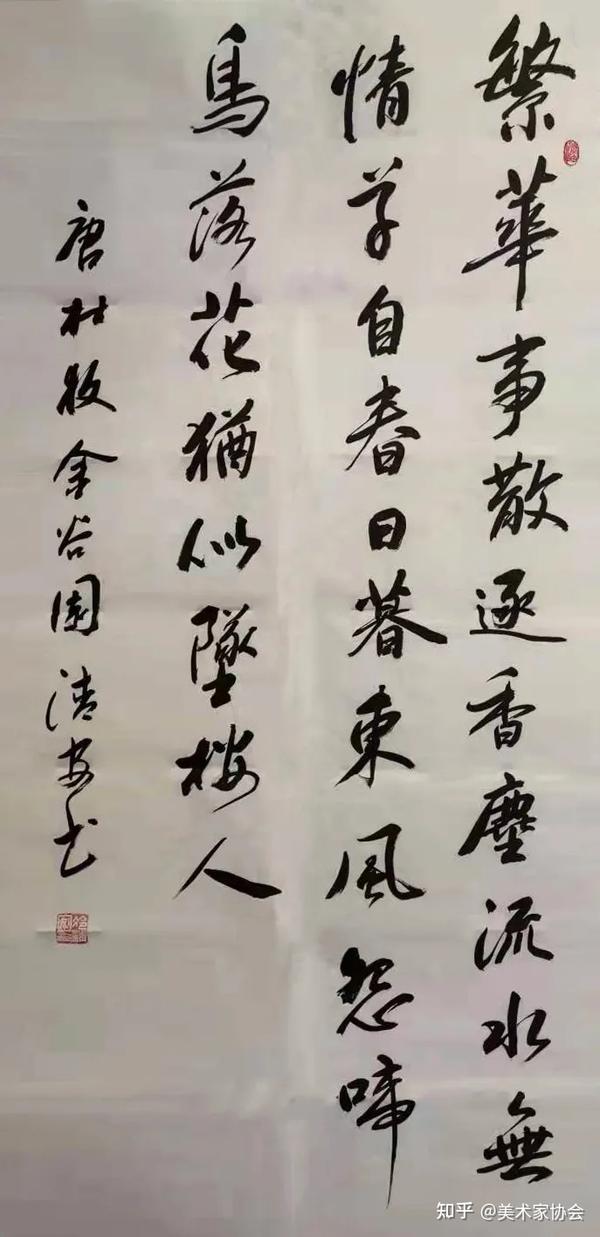 繁華事散逐香塵流水無
情草自春日暮東風怨啼
鳥落花猶似墜樓人
唐杜牧金谷園清安书
知乎 @美术家协会